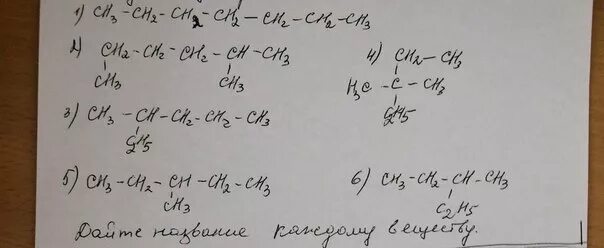 1) CH3 – CH2 – CH2 – CH2 – CH2 – CH2 – CH3
2) CH2 – CH2 – CH2 – CH – CH3
CH3 CH3
4) CH2 – CH3
H3C – C – CH3
C2H5
3) CH3 – CH – CH2 – CH2 – CH3
C2H5
5) CH3 – CH2 – CH – CH2 – CH3
CH3
6) CH3 – CH2 – CH – CH3
C2H5
Дайте название каждому веществу.